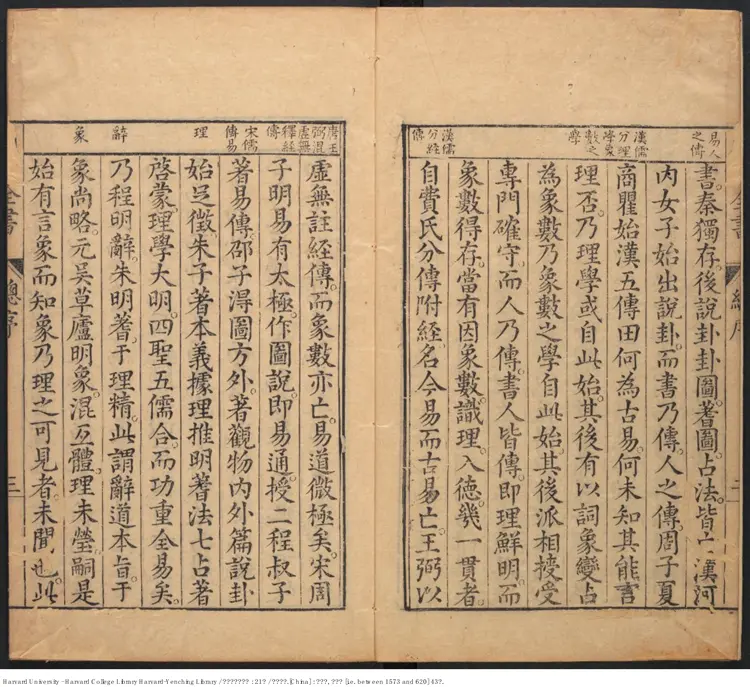 易人之傳
漢儒分理學象數之學
漢儒分經傳
書秦獨存後說卦卦圖蓍圖占法皆亡漢河
內女子始出說卦而書乃傳人之傳周子夏
商瞿始漢五傳田何為古易何未知其能言
理否乃理學或自此始其後有以詞象變占
為象數乃象數之學自此始其後派相授受
專門確守而人乃傳書人皆傳即理鮮明而
象數得存當有因象數識理入德幾一貫者
自費氏分傳附經名今易而古易亡王弼以
全書 總序 二
唐王弼混虛無釋經傳
宋儒傳易
理
辭
象
虛無註經傳而象數亦亡易道微極矣宋周
子明易有太極作圖說即易通授二程叔子
著易傳邵子得圖方外著觀物內外篇說卦
始足徵朱子著本義據理推明蓍法七占著
啓蒙理學大明四聖五儒合而功重全易矣
乃程明辭朱明蓍于理精此謂辭道本旨于
象尚略元吳草廬明象混互體理未瑩嗣是
始有言象而知象乃理之可見者未聞也此
全書 總序 三
Harvard University - Harvard College Library Harvard-Yenching Library / ??????? : 21? / ????. [China] : ???, ??? [i.e. between 1573 and 620] 43?.